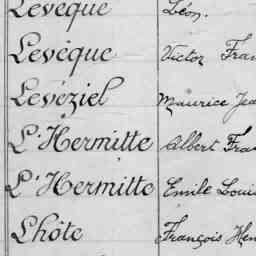 Levêque Léon.
Levêque Victor Fran
Levéziel Maurice Jea
L'Hermitte Albert Fra
L'Hermitte Emile Loui
Lhôte François Hen